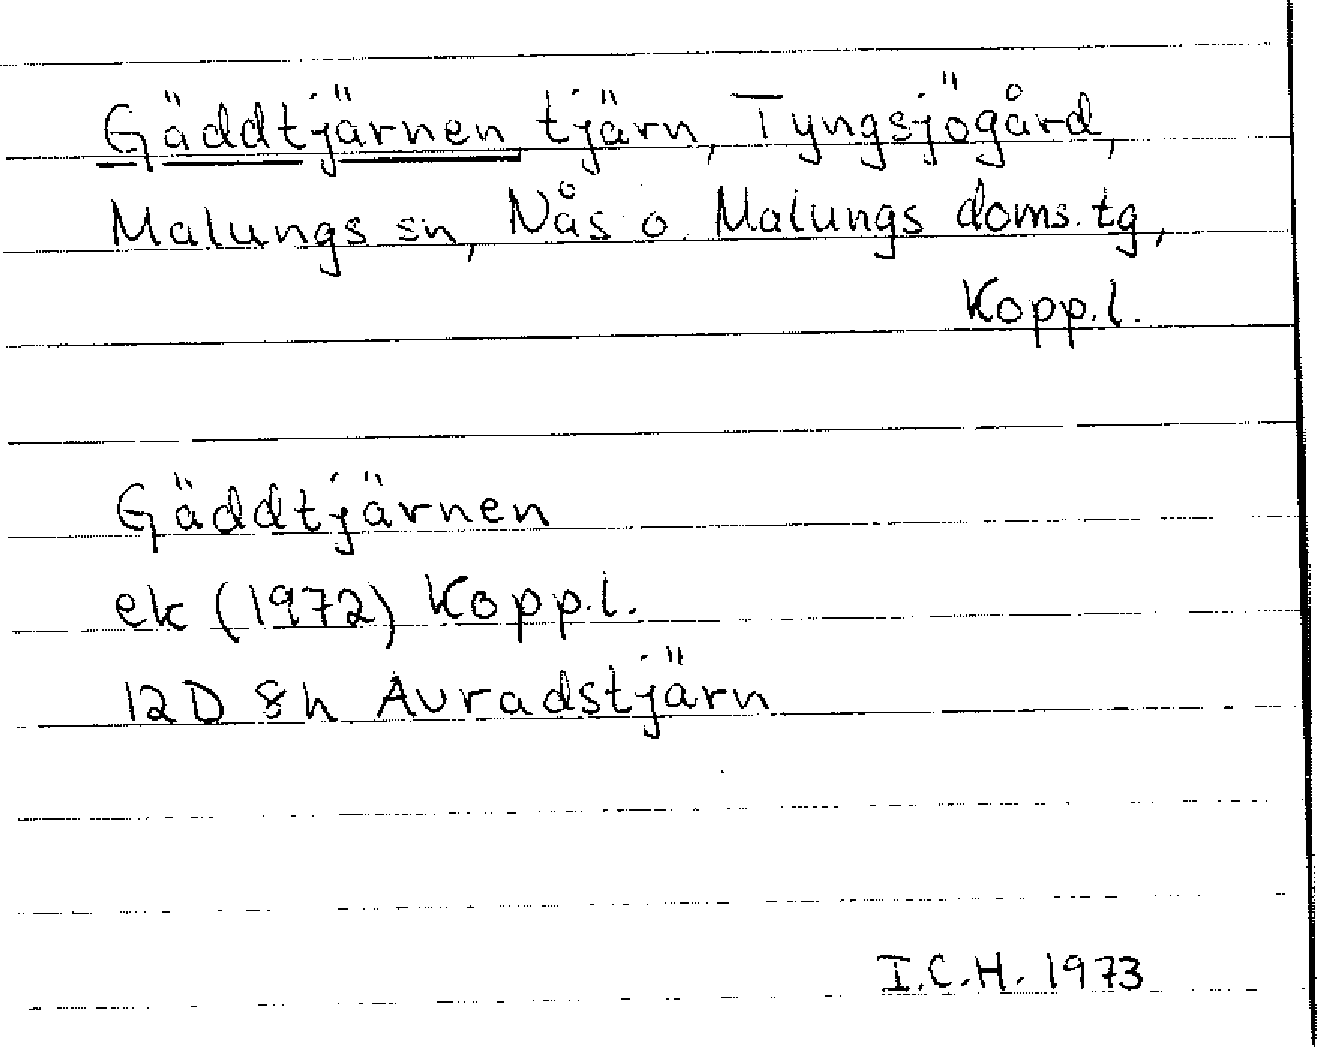 Gäddtjärnen tjärn, Tyngsjögård,
Malungs sn, Nås o. Malungs doms. tg,
Kopp.l.
Gäddtjärnen
ek (1972) Kopp.l.
12D 8h Avradstjärn
I.C.H. 1973